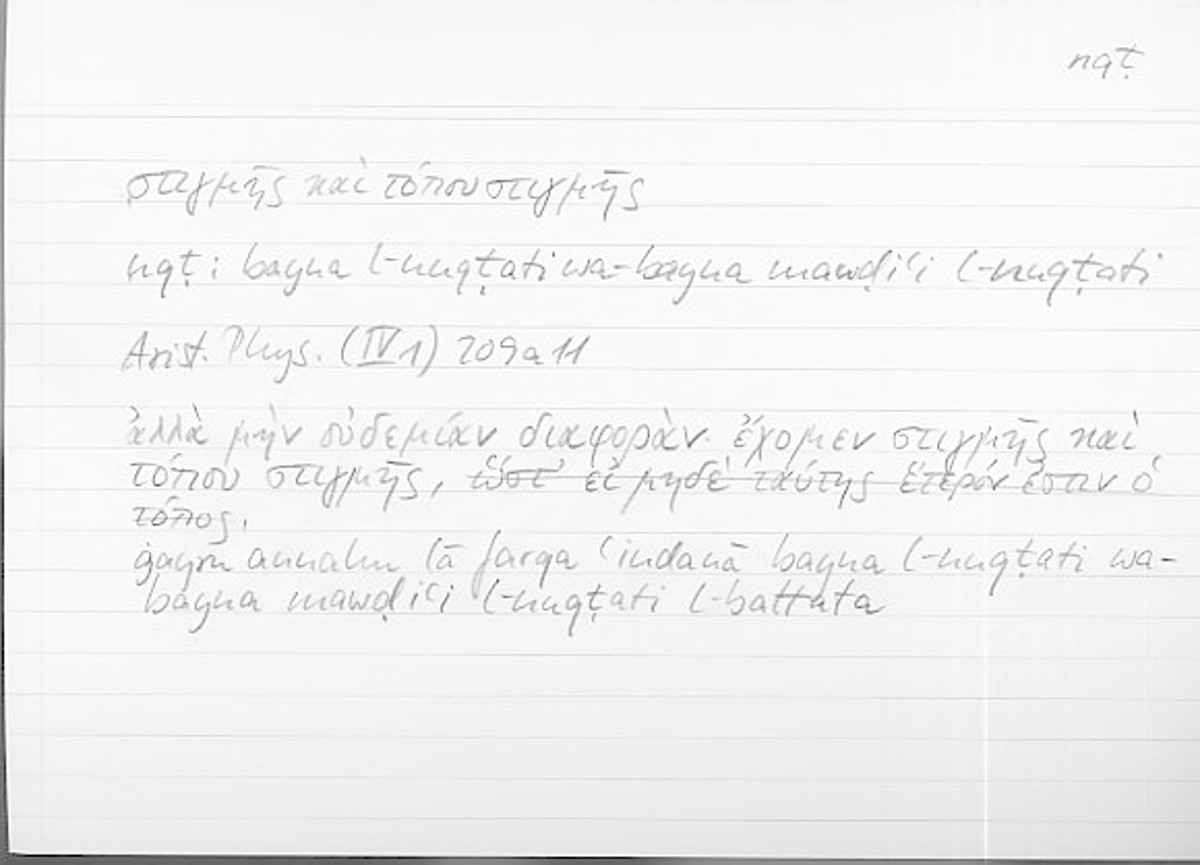 nqṭ
στιγμῆς καὶ τόπου στιγμῆς
nqṭ: bayna l-nuqṭati wa-bayna mawḍiʿi l-nuqṭati
Arist. Phys. (IV 1) 209a11
ἀλλὰ μὴν οὐδεμίαν διαφορὰν ἔχομεν στιγμῆς καὶ
τόπου στιγμῆς, ὥστ' εἰ μηδὲ ταύτης ἕτερόν ἐστιν ὁ
τόπος,
ġayra annahu lā farqa ʿindanā bayna l-nuqṭati wa-
bayna mawḍiʿi l-nuqṭati l-battata